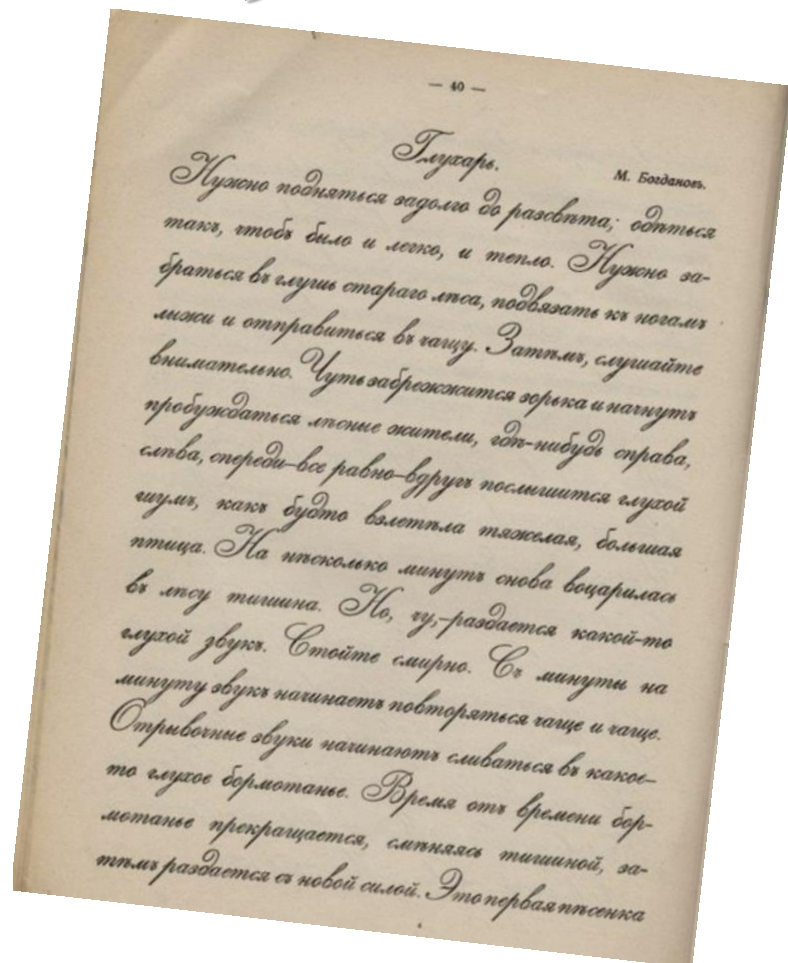 — 40 —
Глухарь.
М. Богдановъ.
Нужно подняться задолго до разсвѣта; одѣться
такъ, чтобъ было и легко, и тепло. Нужно за-
браться въ глушь стараго лѣса, подвязать къ ногамъ
лыжи и отправиться въ чащу. Затѣмъ, слушайте
внимательно. Чуть забрежжится зорька и начнутъ
пробуждаться лѣсные жители, гдѣ-нибудь справа,
слѣва, спереди—все равно—вдругъ послышится глухой
шумъ, какъ будто взлетѣла тяжелая, большая
птица. На нѣсколько минутъ снова воцарилась
въ лѣсу тишина. Но, чу,—раздается какой-то
глухой звукъ. Стойте смирно. Съ минуты на
минуту звукъ начинаетъ повторяться чаще и чаще.
Отрывочные звуки начинаютъ сливаться въ какое-
то глухое бормотанье. Время отъ времени бор-
мотанье прекращается, смѣняясь тишиной, за-
тѣмъ раздается съ новой силой. Это первая пѣсенка